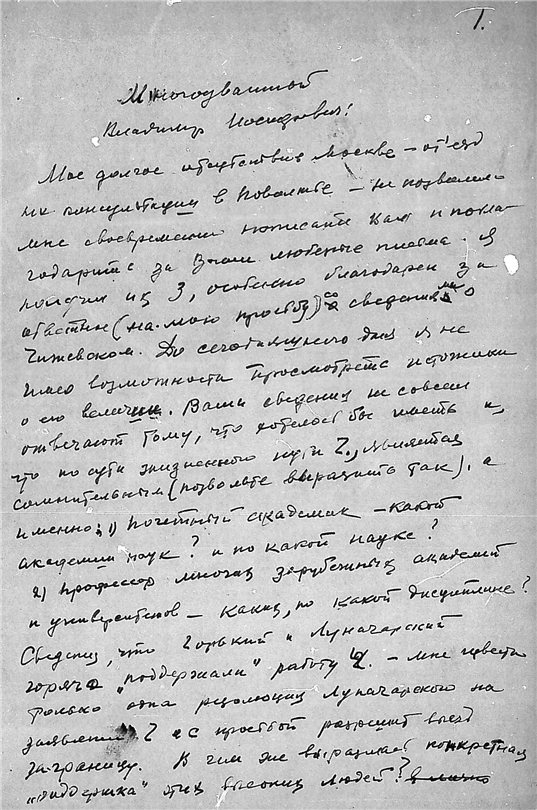 1.
Многоуважаемый
Владимир Иосифович!
Мое долгое отсутствие в Москве – отъезд
на консультации в Поволжье – не позволило
мне своевременно написать Вам и побла-
годарить за Ваши любезные письма. Я
получил их 3, особенно благодарен за
ответные (на мою просьбу) со сведениями о
Чижевском. До сегодняшнего дня я не
имею возможности просмотреть источники
о его величии. Ваши сведения не совсем
отвечают тому, что хотелось бы иметь и,
что по сути жизненного пути Ч., является
сомнительным (позвольте выразить так), а
именно: 1) почетный академик – какой
академии наук? и по какой науке?
2) профессор многих зарубежных академий
и университетов – каких, по какой дисциплине?
Сведения, что Горький и Луначарский
горячо "поддержали" работу Ч. – мне известна
только одна резолюция Луначарского на
заявлении Ч с просьбой разрешить выезд
заграницу. В чем же выразилась конкретная
"поддержка" этих высоких людей?